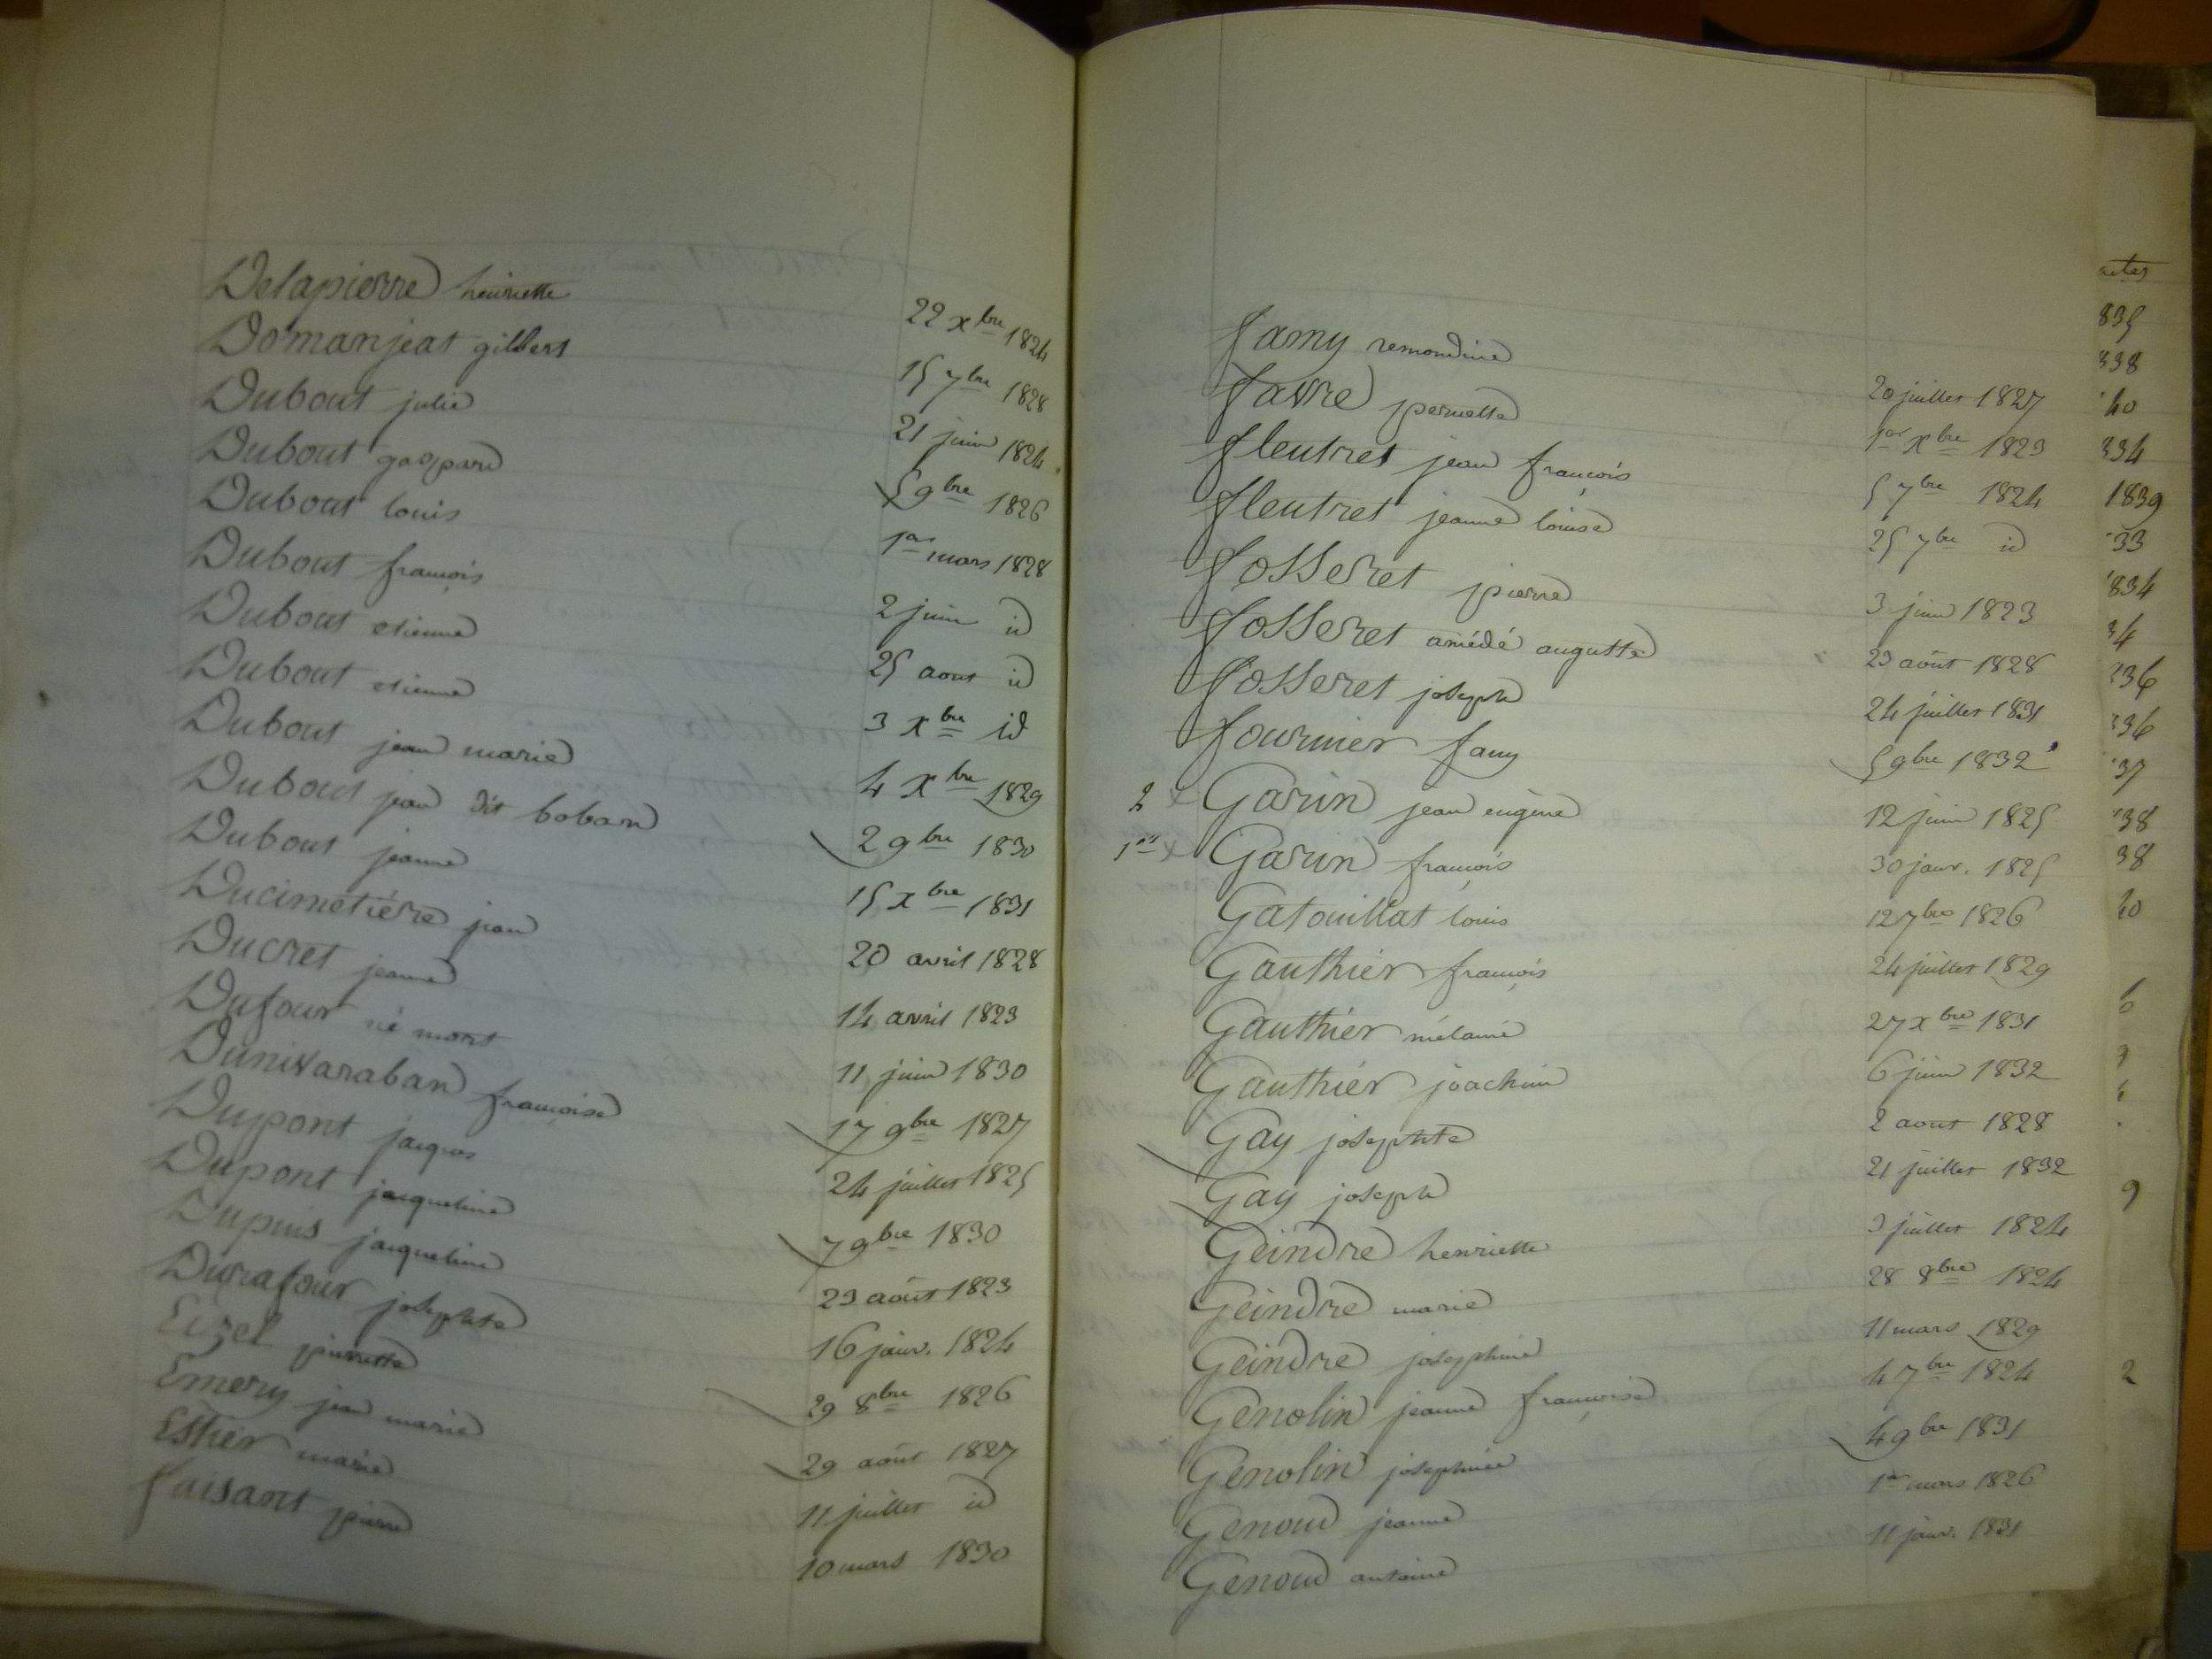 Delapierre henriette 22 xbre 1824
Domanjeat gilbert 15 7bre 1828
Dubout julie 21 juin 1824
Dubout gaspard 5 9bre 1826
Dubout louis 1er mars 1828
Dubout françois 2 juin id
Dubout etienne 25 aout id
Dubout etienne 3 xbre id
Dubout jean marie 4 xbre 1829
Dubout jean dit boban 2 9bre 1830
Dubout jeanne 15 xbre 1831
Ducimetière jean 20 avril 1828
Ducret jeanne 14 avril 1823
Dufour né mort 11 juin 1830
Dunivaraban françoise 17 9bre 1827
Dupont jacques 24 juillet 1825
Dupont jacqueline 7 9bre 1830
Dupuis jacqueline 23 août 1823
Durafour josephte 16 janv. 1824
Eizel pierrette 29 8bre 1826
Emery jean marie 29 août 1827
Estier marie 11 juillet id
faisant pierre 10 mars 1830
famy remondine 20 juillet 1827
favre pernette 1er xbre 1823
fleutret jean françois 5 7bre 1824
fleutret jeanne louise 25 7bre id
fosseret pierre 3 juin 1823
fosseret amédé auguste 23 août 1828
fosseret joseph 24 juillet 1831
fournier fany 5 9bre 1832
2 x Garin jean eugène 12 juin 1825
1er x Garin françois 30 janv. 1825
Gatouillat louis 12 7bre 1826
Gauthier françois 24 juillet 1829
Gauthier mélanie 27 xbre 1831
Gauthier joachim 6 juin 1832
Gay josephte 2 aout 1828
Gay joseph 21 juillet 1832
Geindre henriette 3 juillet 1824
Geindre marie 28 8bre 1824
Geindre josephine 11 mars 1829
Genolin jeanne françoise 4 7bre 1824
Genolin josephine 4 9bre 1831
Genoud jeanne 1er mars 1826
Genoud antoine 11 janv. 1831
835
338
40
334
1839
33
834
34
336
336
37
38
38
40
9
2